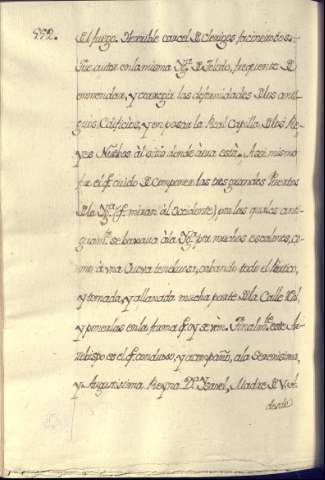 552.
El fuego. Horrible carcel de Clerigos facinerosos.
Fue autor en la misma Yg.ª de Toledo, frequente de
emmendar, y corregir las deformidades de los anti-
guos Edificios, y en pasar la Real Capilla de los Re-
yes Nuebos àl sitio donde àora està. Assi mismo
fue el q.e cuido de componer las tres grandes Puertas
de la Yg.ª (q.e miran àl Occidente), por las quales anti-
guam.te se baxaua à la Yg.ª por muchos escalones, co-
mo à vna Cueva tenebrosa, cabando todo el
y tomada, y allanada mucha parte de la Calle R.l
y ponerlas en la forma q.e oy se vèn. Finalm.te este Ar-
zobispo es el q.e conduxo, y acompañó, à la Serenissima,
y Augustissima Reyna D.ª Ysavel, Madre de V. A.
desde